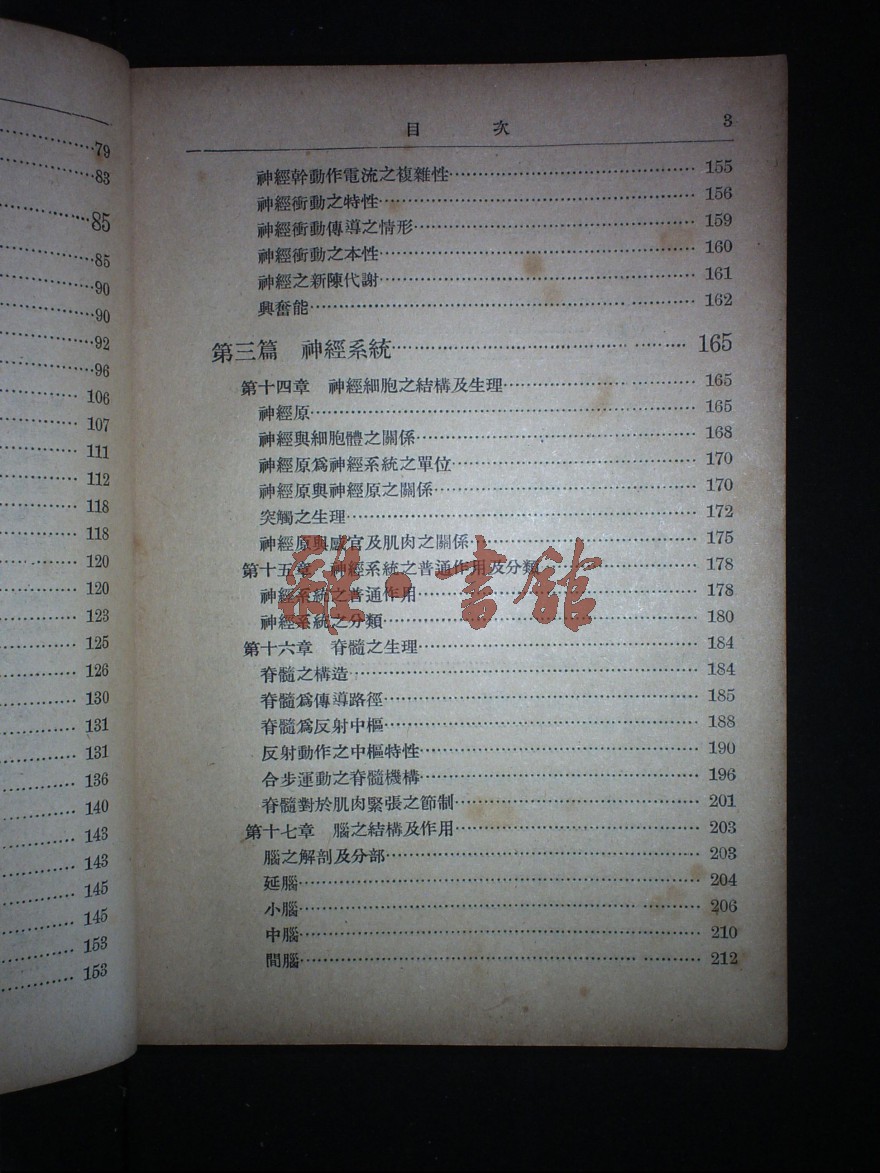 79
83
85
85
90
90
92
96
106
107
111
112
118
118
120
120
123
125
126
130
131
131
136
140
143
143
145
145
153
153
目 次 3
神經幹動作電流之複雜性 155
神經衝動之特性 156
神經衝動傳導之情形 159
神經衝動之本性 160
神經之新陳代謝 161
興奮能 162
第三篇 神經系統 165
第十四章 神經細胞之結構及生理 165
神經原 165
神經與細胞體之關係 168
神經原爲神經系統之單位 170
神經原與神經原之關係 170
突觸之生理 172
神經原與感官及肌肉之關係 175
第十五章 神經系統之普通作用及分類 178
神經系統之普通作用 178
神經系統之分類 180
第十六章 脊髓之生理 184
脊髓之構造 184
脊髓爲傳導路徑 185
脊髓爲反射中樞 188
反射動作之中樞特性 190
合步運動之脊髓機構 196
脊髓對於肌肉緊張之節制 201
第十七章 腦之結構及作用 203
腦之解剖及分部 203
延腦 204
小腦 206
中腦 210
間腦 212
雜·書館